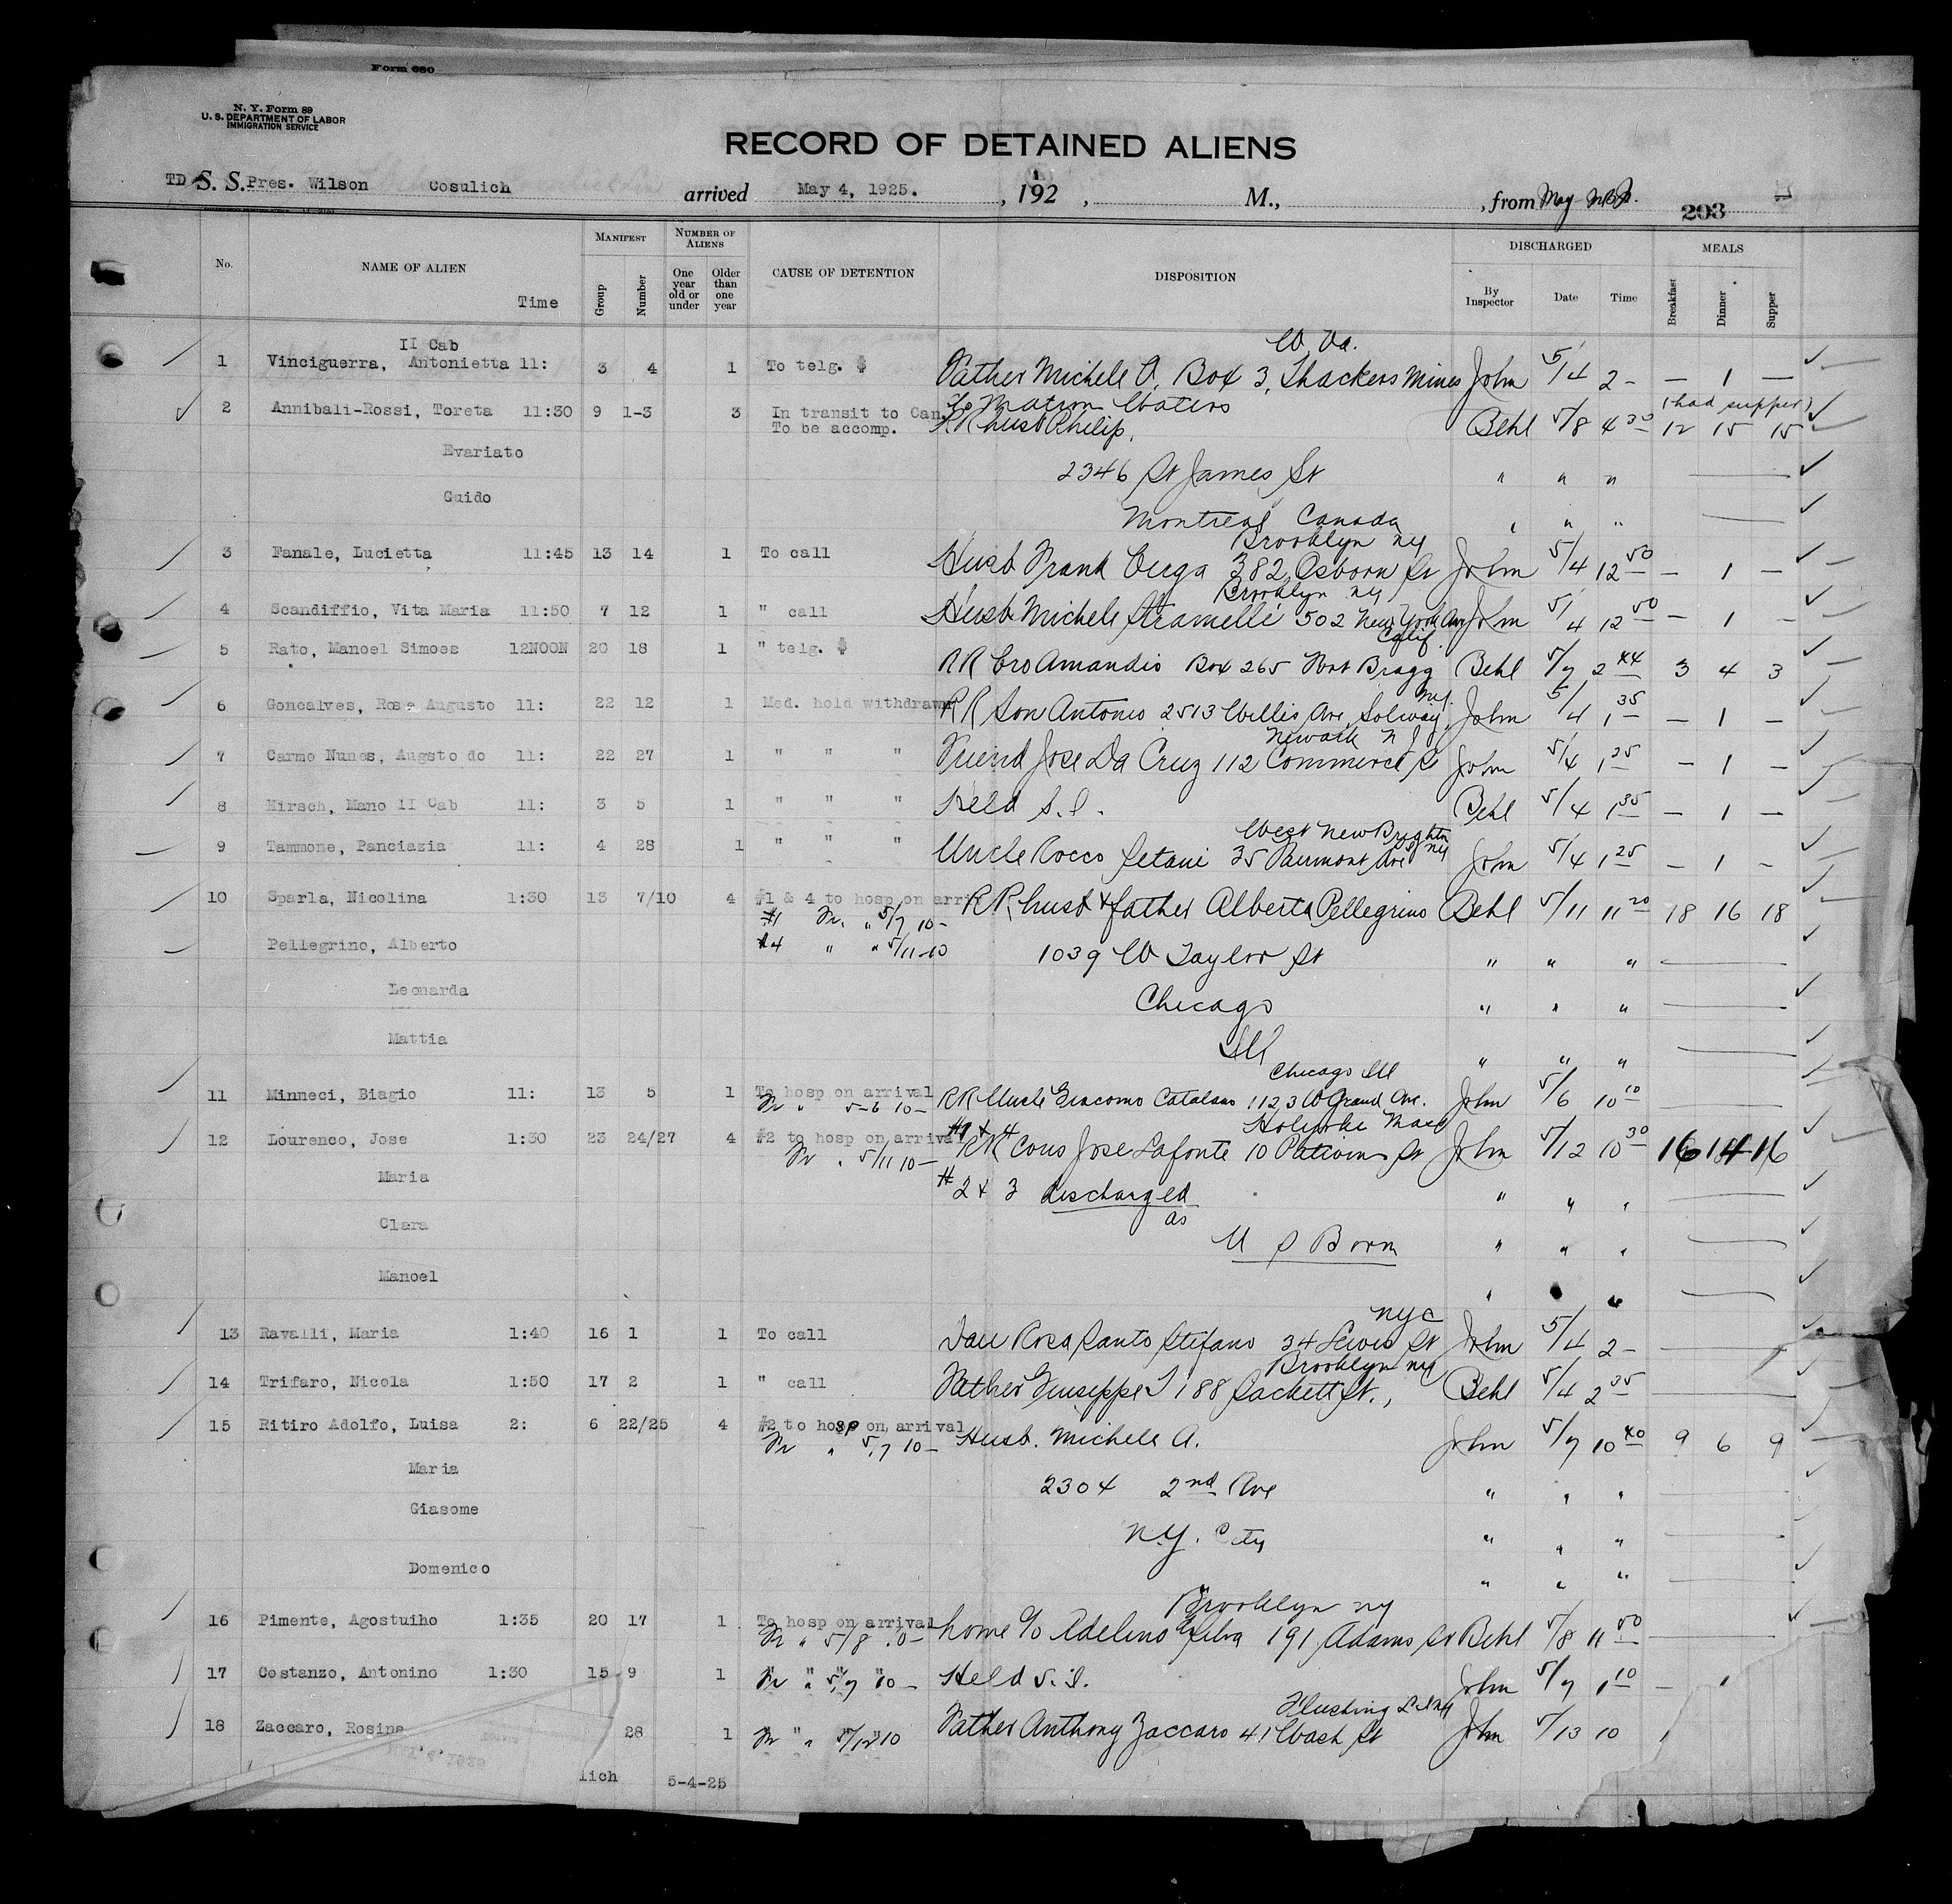 Form 630
N. Y. Form 89
U. S. DEPARTMENT OF LABOR
IMMIGRATION SERVICE
RECORD OF DETAINED ALIENS
TD S. S. Pres. Wilson Cosulich arrived May 4, 1925. , 192 , M., , from May 203
No. NAME OF ALIEN Time MANIFEST Group Number NUMBER OF ALIENS One year old or under Older than one year CAUSE OF DETENTION DISPOSITION DISCHARGED By Inspector Date Time MEALS Breakfast Dinner Supper
II Cab W. Va.
1 Vinciguerra, Antonietta 11: 3 4 1 To telg. $ Father Michele V. Box 3, Thackers Mines John 5/4 2- — 1 —
2 Annibali-Rossi, Toreta 11:30 9 1-3 3 In transit to Can. c/o Matron Waters (had supper)
To be accomp. RR husb Philip, Behl 5/8 4 30 12 15 15
Evariato 2346 St James St " " "
Guido Montreal Canada " " "
Brooklyn ny
3 Fanale, Lucietta 11:45 13 14 1 To call Husb Frank 382 Osborn St John 5/4 12 50 — 1 —
Brooklyn ny
4 Scandiffio, Vita Maria 11:50 7 12 1 " call Husb Michele 502 New York Ave John 5/4 12 50 — 1 —
Calif.
5 Rato, Manoel Simoes 12NOON 20 18 1 " telg. $ RR bro Amandio Box 265 Fort Bragg Behl 5/7 2 44 3 4 3
ny.
6 Goncalves, Rosa Augusto 11: 22 12 1 Med. hold withdrawn RR Son Antonio 2513 Willis Ave, Solway, John 5/4 1 35 — 1 —
Newark N J
7 Carmo Nunes, Augsto do 11: 22 27 1 " " " Friend Jose Da Cruz 112 Commerce St John 5/4 1 25 — 1 —
8 Hirsch, Mano II Cab 11: 3 5 1 " " " Held S.I. Behl 5/4 1 35 — 1 —
West New Brighton
9 Tammone, Panciazia 11: 4 28 1 " " " Uncle Rocco Setani 35 Ave S.I. NY John 5/4 1 25 — 1 —
10 Sparla, Nicolina 1:30 13 7/10 4 #1 & 4 to hosp on arri RR husb & father Alberta Pellegrino Behl 5/11 11 20 18 16 18
#1 Fr. " 5/7 10-
Pellegrino, Alberto #4 " " 5/11-10 1039 W Taylor St " " "
Leonarda Chicago " " "
Mattia Ill " " "
Chicago Ill
11 Minneci, Biagio 11: 13 5 1 To hosp on arrival RR Uncle Giacomo Catalano 1123 W Grand Ave. John 5/6 10 10
Fr " 5-6 10-
#1 & 4 Holyoke Mass
12 Lourenco, Jose 1:30 23 24/27 4 #2 to hosp on arrival RR Cous Jose Lafonte 10 St John 5/12 10 30 16 14 16
Fr " 5/11 10-
Maria #2 & 3 discharged " " "
as
Clara U S Born " " "
Manoel " " "
nyc
13 Ravalli, Maria 1:40 16 1 1 To call Rosa Santo Stefano 34 Lewis St John 5/4 2-
Brooklyn ny
14 Trifaro, Nicola 1:50 17 2 1 " call Father Giuseppe T 188 Sackett St., Behl 5/4 2 35
15 Ritiro Adolfo, Luisa 2: 6 22/25 4 #2 to hosp on arrival Husb. Michele A. John 5/7 10 40 9 6 9
Fr " 5,7 10-
Maria 2304 2nd Ave " " "
Giasome N.Y. City " " "
Domenico " " "
Brooklyn ny
16 Pimente, Agostuiho 1:35 20 17 1 To hosp on arrival home c/o Adelino Silva 191 Adams St Behl 5/8 11 50
Fr " 5/8 10-
17 Costanzo, Antonino 1:30 15 9 1 " " " " Fr " 5,7 10- Held S.I. John 5/7 1 10 — 1
Flushing L.I. NY
18 Zaccaro, Rosina 28 1 " " " " Fr " 5/12 10 Father Anthony Zaccaro 41 Wash St John 5/13 10
lich 5-4-25